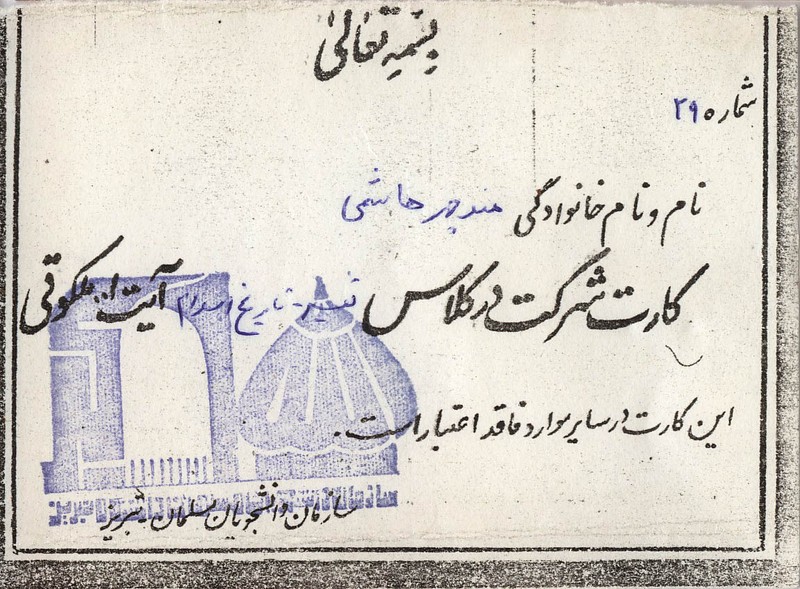 بسمه تعالی
شماره ۲۹
نام و نام خانوادگی منوچهر هاشمی
کارت شرکت در کلاس تفسیر - تاریخ اسلام آیت ا... ملکوتی
این کارت در سایر موارد فاقد اعتبار است.
سازمان دانشجویان مسلمان - تبریز